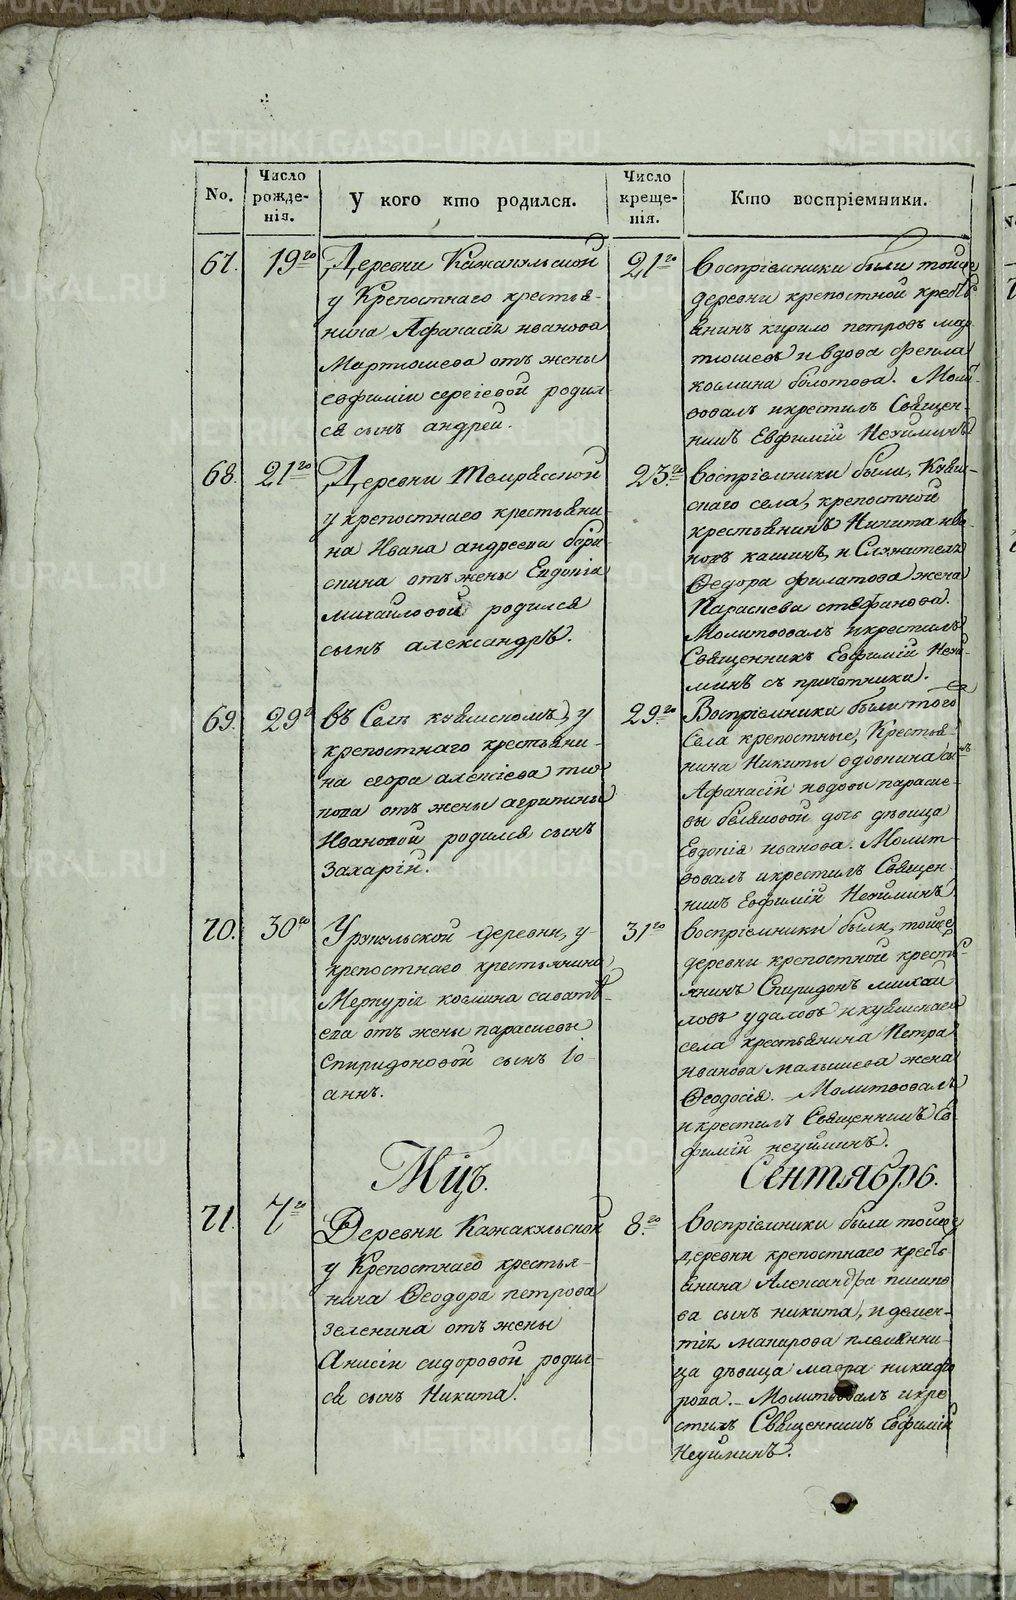 METRIKI.GASO-URAL.RU
No.
Число рожде-нія.
У кого кто родился.
Число креще-нія.
Кто воспріемники.
67.
19го
Деревни Кажакульской
у Крепостнаго крестья-
нина Афанасія иванова
Мартюшева отъ жены
евфиміи сергіевой родил-
ся сынъ андрей.
21го
воспріемники были тойже
деревни крепостной кресть
янинъ кирило петровъ мар
тюшевъ и вдова фекла
козмина болотова. Моли
вовалъ и крестилъ Священ-
никъ Евфимій Неуйминъ
68.
21го
Деревни
у крепостнаго крестьяни
на Ивана андреева бори
скина отъ жены Евдокіи
михайловой родился
сынъ александръ.
23го
воспріемники были, Куяш-
скаго села, крепостной
крестьянинъ Никита ива
новъ кашинъ, и Служителя
Ѳедора филатова жена
Параскева стефанова.
Молитвовалъ и крестилъ
Священникъ Евфимій Неуй
минъ съ причетники.
69.
29го
въ Селѣ куяшскомъ, у
крепостнаго крестьяни-
на егора алексіева
попа отъ жены агрипины
Ивановой родился сынъ
Захарій.
29го
Воспріемники были того
Села крепостные, Крестья-
нина Никиты одовкина сынъ
Афанасій и вдовы параске-
вы беляковой дочь дѣвица
Евдокія иванова. Молит-
вовалъ и крестилъ Священ-
никъ Евфимій Неуйминъ
70.
30го
Урукульской деревни, у
крепостнаго крестьянина
Меркурія козмина савать-
ева отъ жены параскевы
Спиридоновой сынъ Іо-
аннъ.
31го
воспріемники были, тойже
деревни крепостной кресть-
янинъ Спиридонъ михай
ловъ удаловъ и куяшскаго
села крестьянина Петра
иванова малышева жена
Ѳеодосія. Молитвовалъ
и крестилъ Священникъ Ев
фимій неуйминъ.
Мцъ.
Сентябрь.
71.
7го
Деревни Кажакульской
у Крепостнаго крестья-
нина Ѳеодора петрова
зеленина отъ жены
Анисіи сидоровой родил-
ся сынъ Никита.
8го
воспріемники были тойже
деревни крепостнаго кресть
янина Александра
ва сынъ никита, и демен-
тія макарова племянни-
ца дѣвица мавра никифо
рова. Молитвовалъ и кре
стилъ Священникъ Евфимій
Неуйминъ.